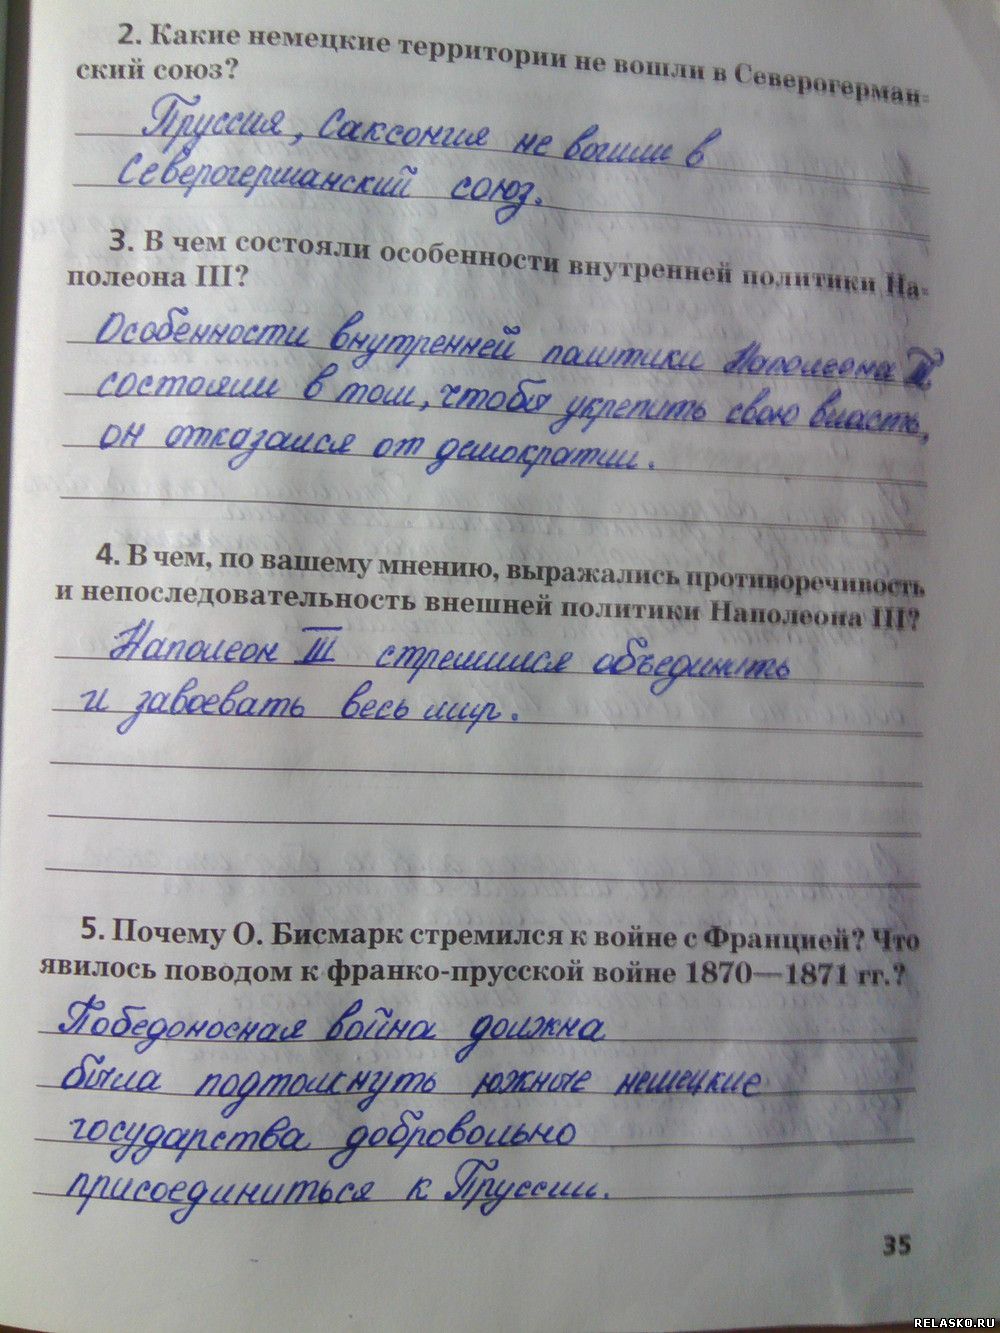 2. Какие немецкие территории не вошли в Северогерман-
ский союз?
Пруссия, Саксония не вошли в
Северогерманский союз.
3. В чем состояли особенности внутренней политики На-
полеона III?
Особенности внутренней политики Наполеона III
состояли в том, чтобы укрепить свою власть,
он отказался от демократии.
4. В чем, по вашему мнению, выражались противоречивость
и непоследовательность внешней политики Наполеона III?
Наполеон III стремился объединить
и завоевать весь мир.
5. Почему О. Бисмарк стремился к войне с Францией? Что
явилось поводом к франко-прусской войне 1870—1871 гг.?
Победоносная война должна
была подтолкнуть южные немецкие
государства добровольно
присоединиться к Пруссии.
35
RELASKO.RU